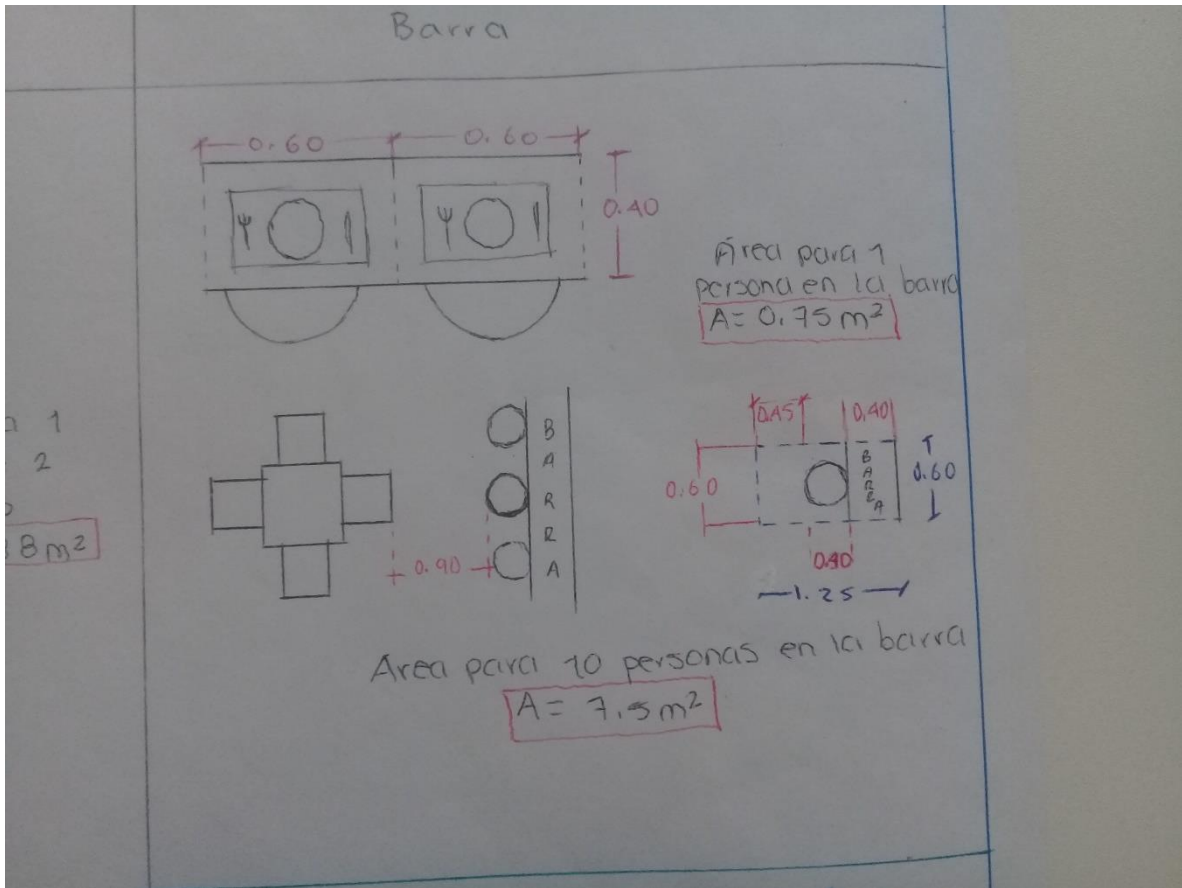 Barra
0.60 0.60
0.40
Área para 1
persona en la barra
A= 0.75 m²
1
2
8m²
B
A
R
R
A
0.90
0.45 0.40
0.60
B
A
R
R
A
0.60
0.40
1.25
Area para 10 personas en la barra
A= 7.5 m²